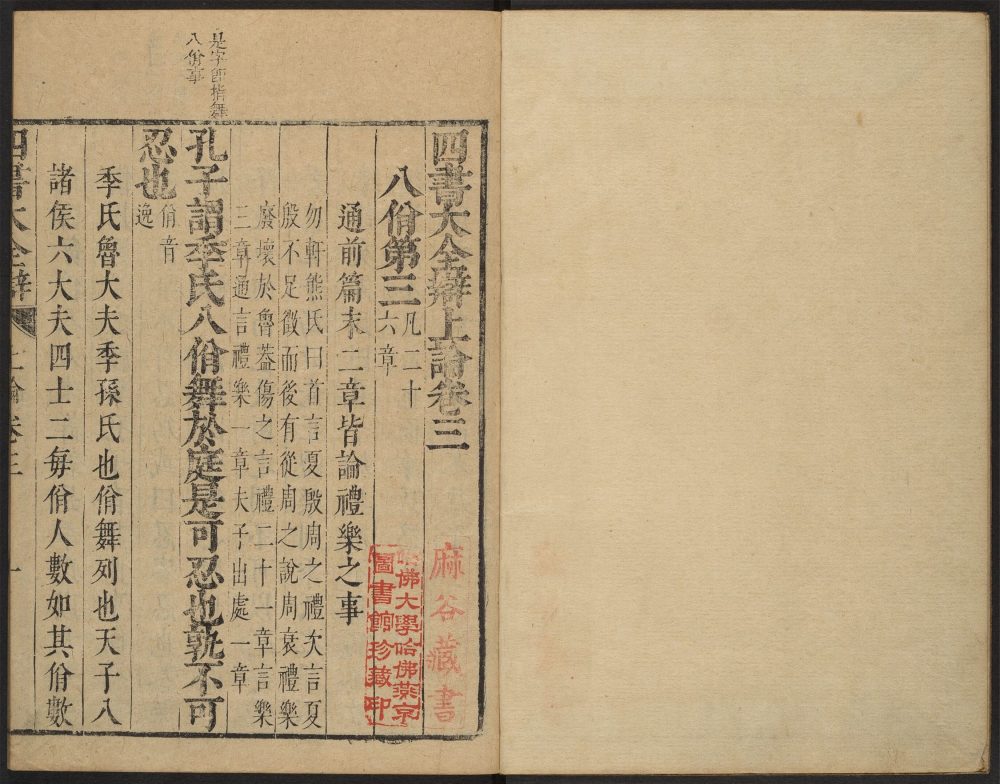 是字即指舞
八佾事
四書大全辯上論卷三
八佾第三 凡二十
六章
通前篇末二章皆論禮樂之事
勿軒熊氏曰首言夏殷周之禮次言夏
殷不足徵而後有從周之說周衰禮樂
廢壞於魯蓋傷之言禮二十一章言樂
三章通言禮樂一章夫子出處一章
孔子謂季氏八佾舞於庭是可忍也孰不可
忍也
佾音
逸
季氏魯大夫季孫氏也佾舞列也天子八
諸侯六大夫四士二每佾人數如其佾數
四書大全辯
上論卷三
一
麻谷藏書
哈佛大學哈佛燕京
圖書館珍藏印